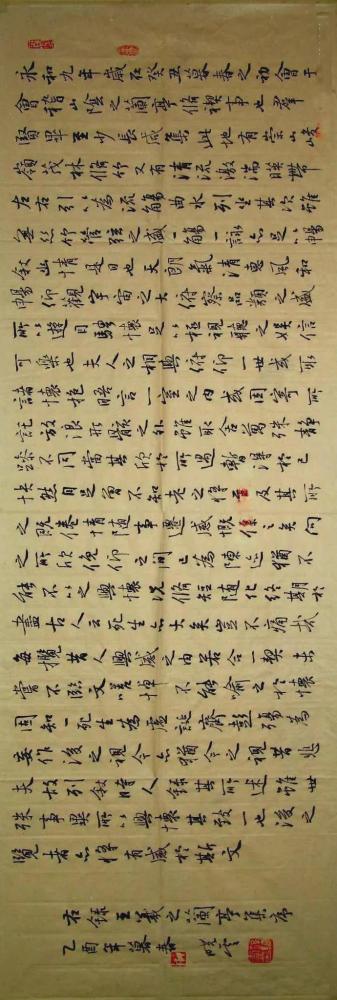 永和九年歲在癸丑暮春之初會于
會稽山陰之蘭亭脩禊事也群
賢畢至少長咸集此地有崇山峻
嶺茂林脩竹又有清流激湍映帶
左右引以為流觴曲水列坐其次雖
無絲竹管弦之盛一觴一詠亦足以暢
敘幽情是日也天朗氣清惠風和
暢仰觀宇宙之大俯察品類之盛
所以遊目騁懷足以極視聽之娛信
可樂也夫人之相與俯仰一世或取
諸懷抱晤言一室之內或因寄所
託放浪形骸之外雖取舍萬殊靜
躁不同當其欣於所遇暫得於己
怏然自足曾不知老之將至及其所
之既倦情隨事遷感慨係之矣向
之所欣俛仰之間已為陳迹猶不
能不以之興懷況脩短隨化終期於
盡古人云死生亦大矣豈不痛哉
每攬昔人興感之由若合一契未
嘗不臨文嗟悼不能喻之於懷
固知一死生為虛誕齊彭殤為
妄作後之視今亦猶今之視昔悲
夫故列敘時人錄其所述雖世
殊事異所以興懷其致一也後之
覽者亦將有感於斯文
右錄王羲之蘭亭集序
乙酉年暮春